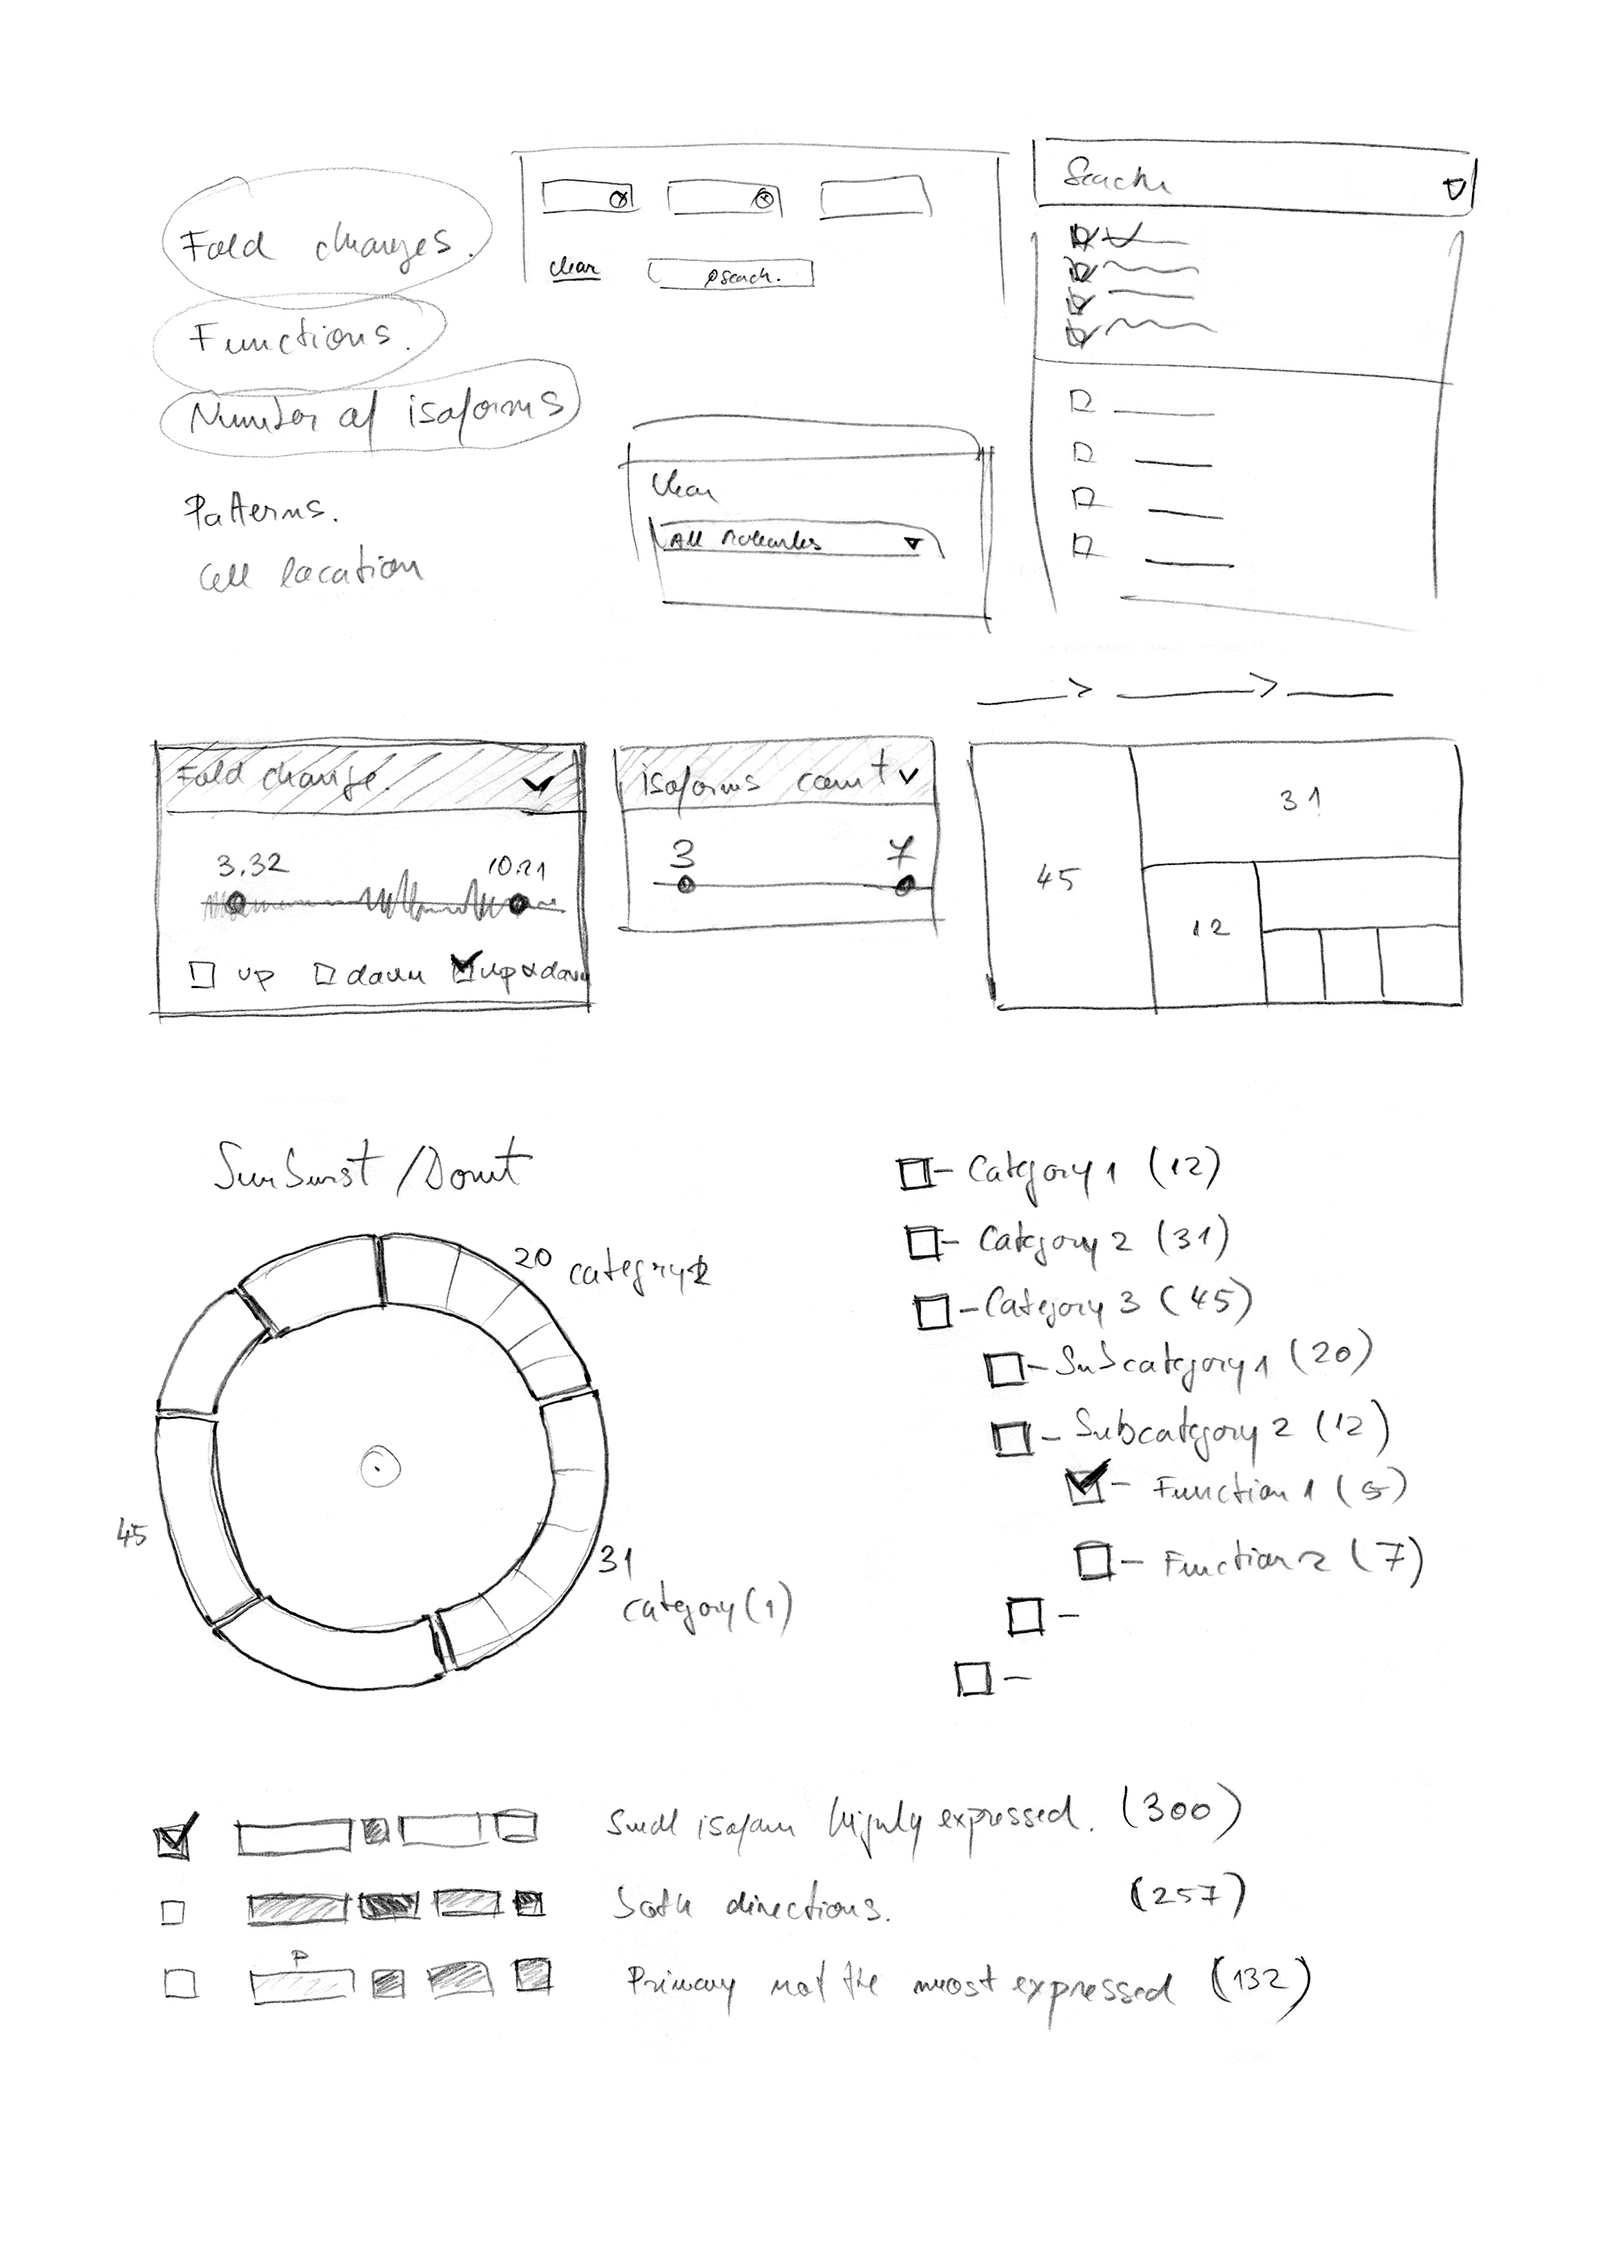 Fold changes.
Functions.
Number of isoforms
Patterns.
Cell location
clear
search.
Search
Clear
All molecules
Fold change.
3.32
10.21
up
down
up & down
isoforms count
3
7
45
31
12
Sunburst / Donut
20 category 2
45
31
category (1)
Category 1 (12)
Category 2 (31)
Category 3 (45)
Subcategory 1 (20)
Subcategory 2 (12)
Function 1 (5)
Function 2 (7)
Small isoform highly expressed. (300)
both directions. (257)
P
Primary not the most expressed (132)